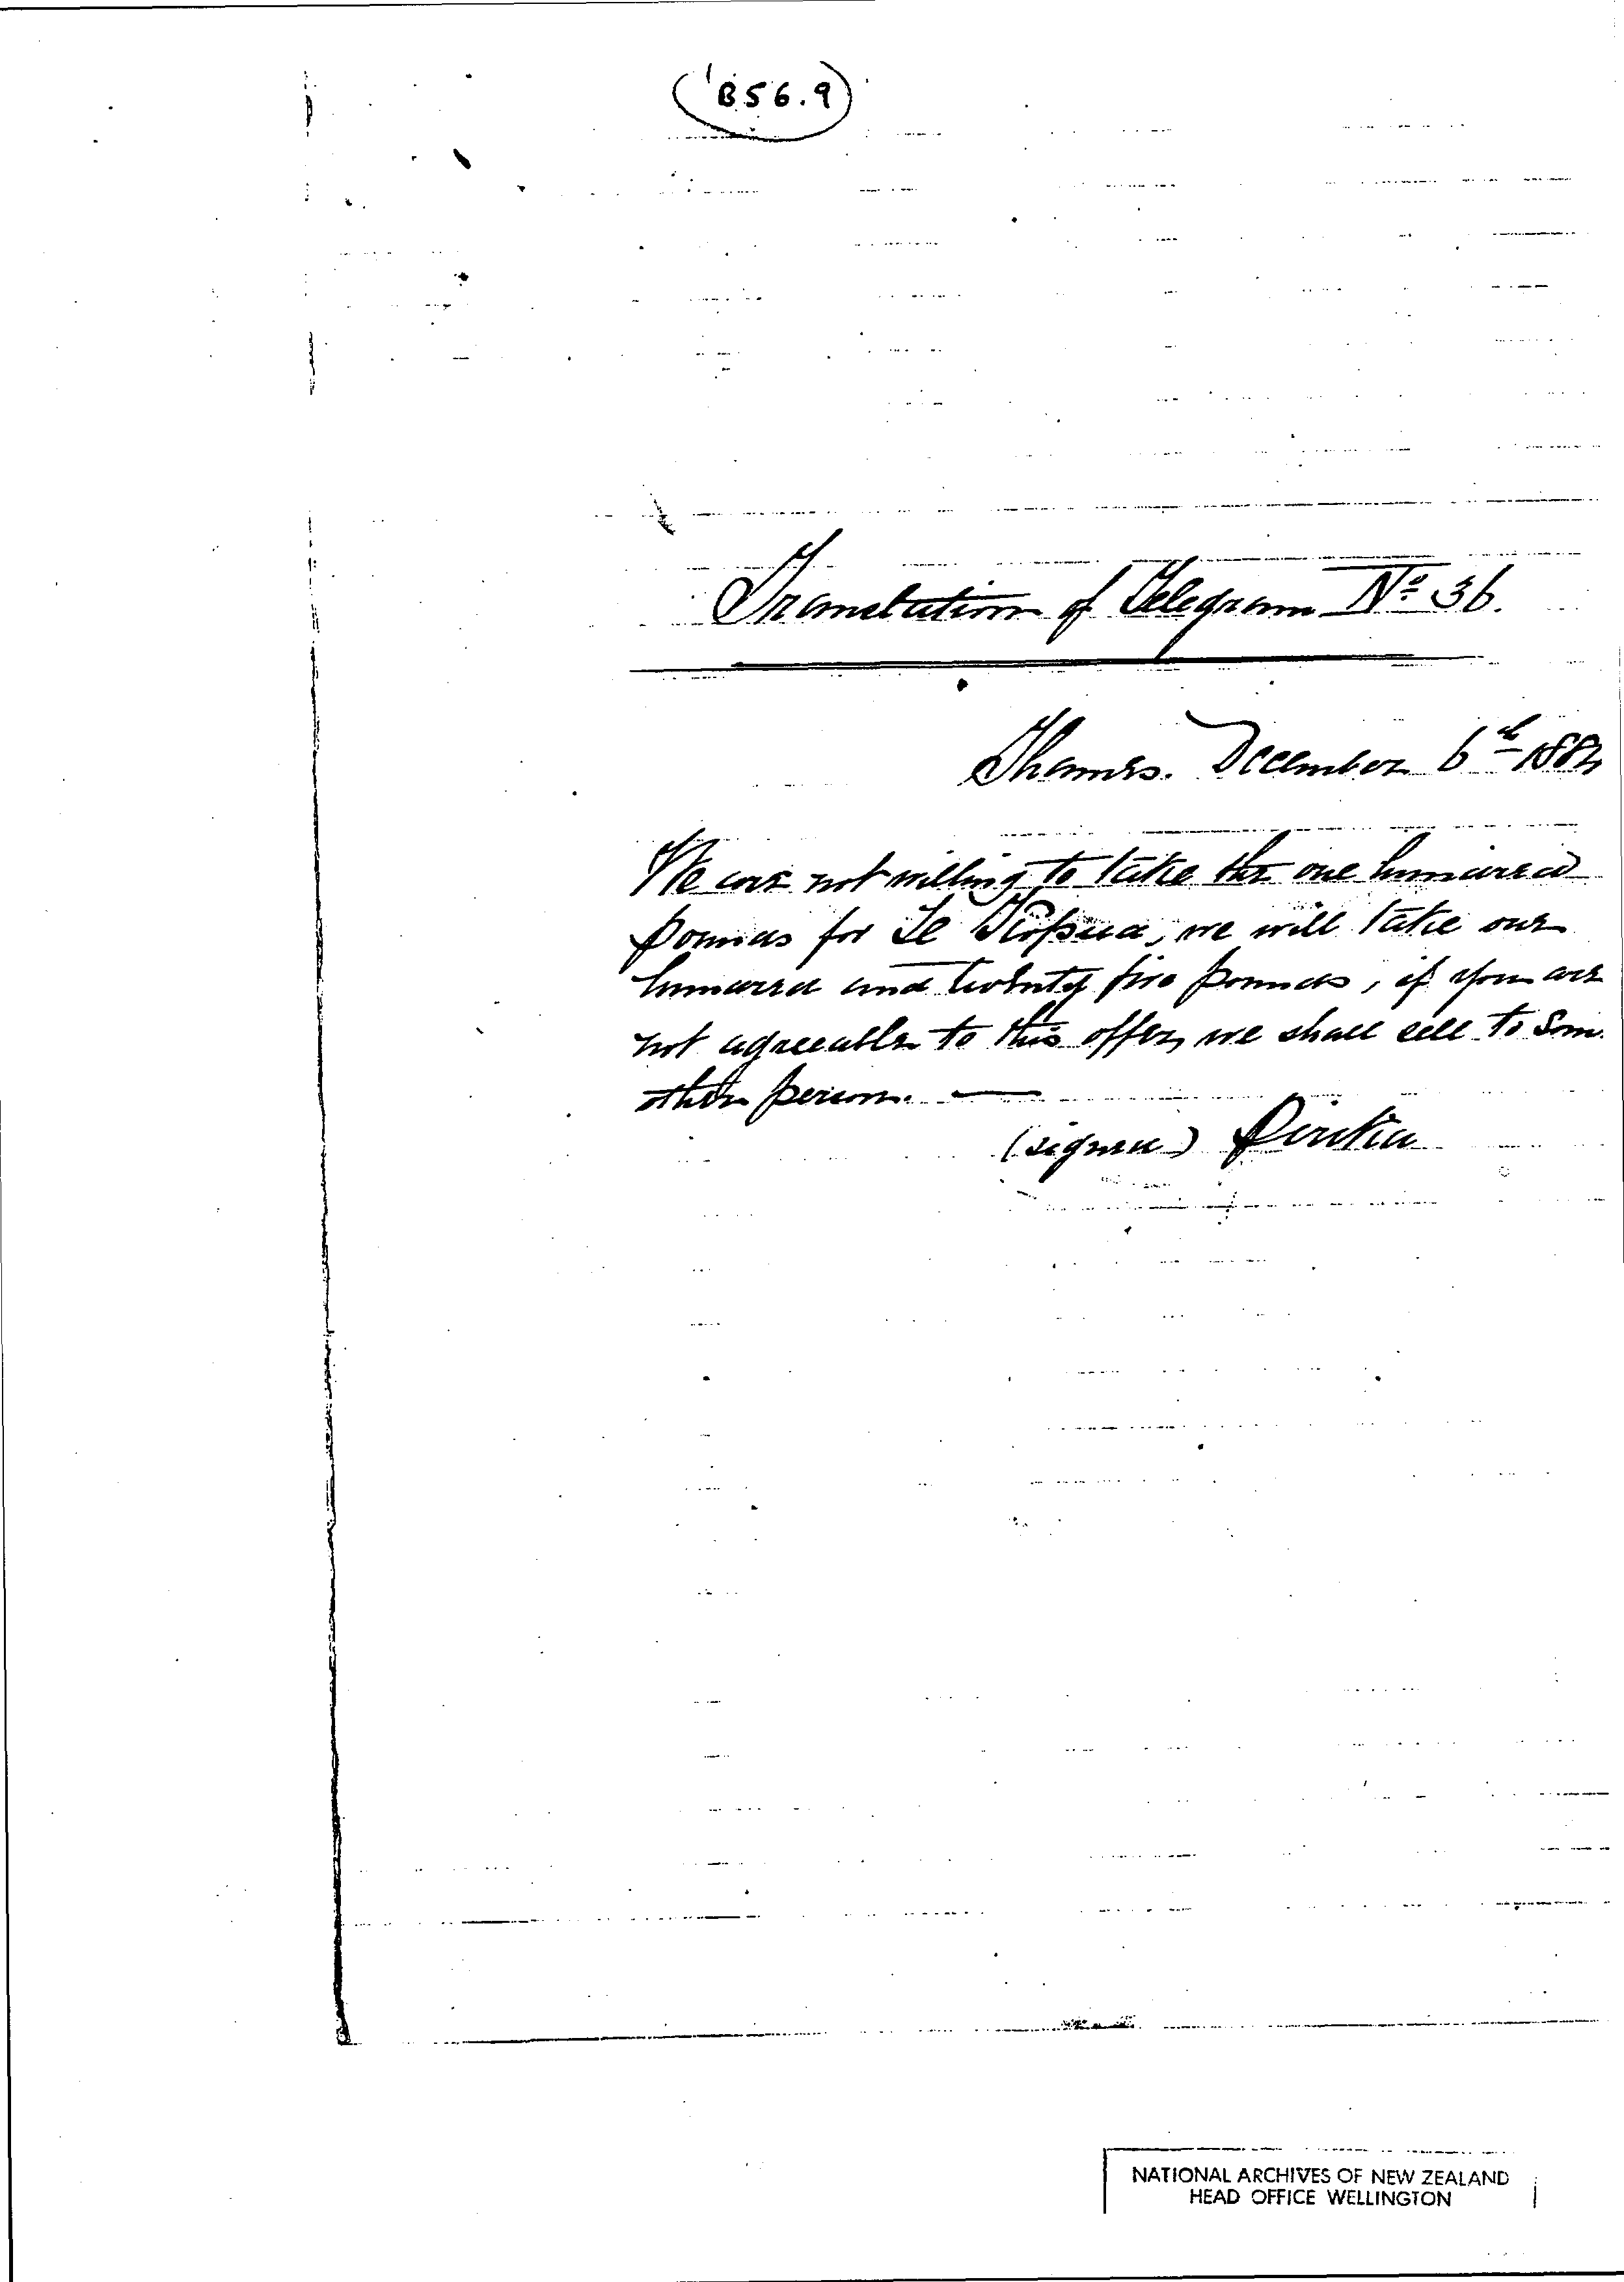 B56.9
Translation of Telegram No 36.
Thames. December 6th
We are not willing to take the one hundred
Pounds for Te we will take one
hundred and twenty five pounds, if you are
not agreeable to this offer, we shall sell to som
other person.
(signed)
NATIONAL ARCHIVES OF NEW ZEALAND
HEAD OFFICE WELLINGTON